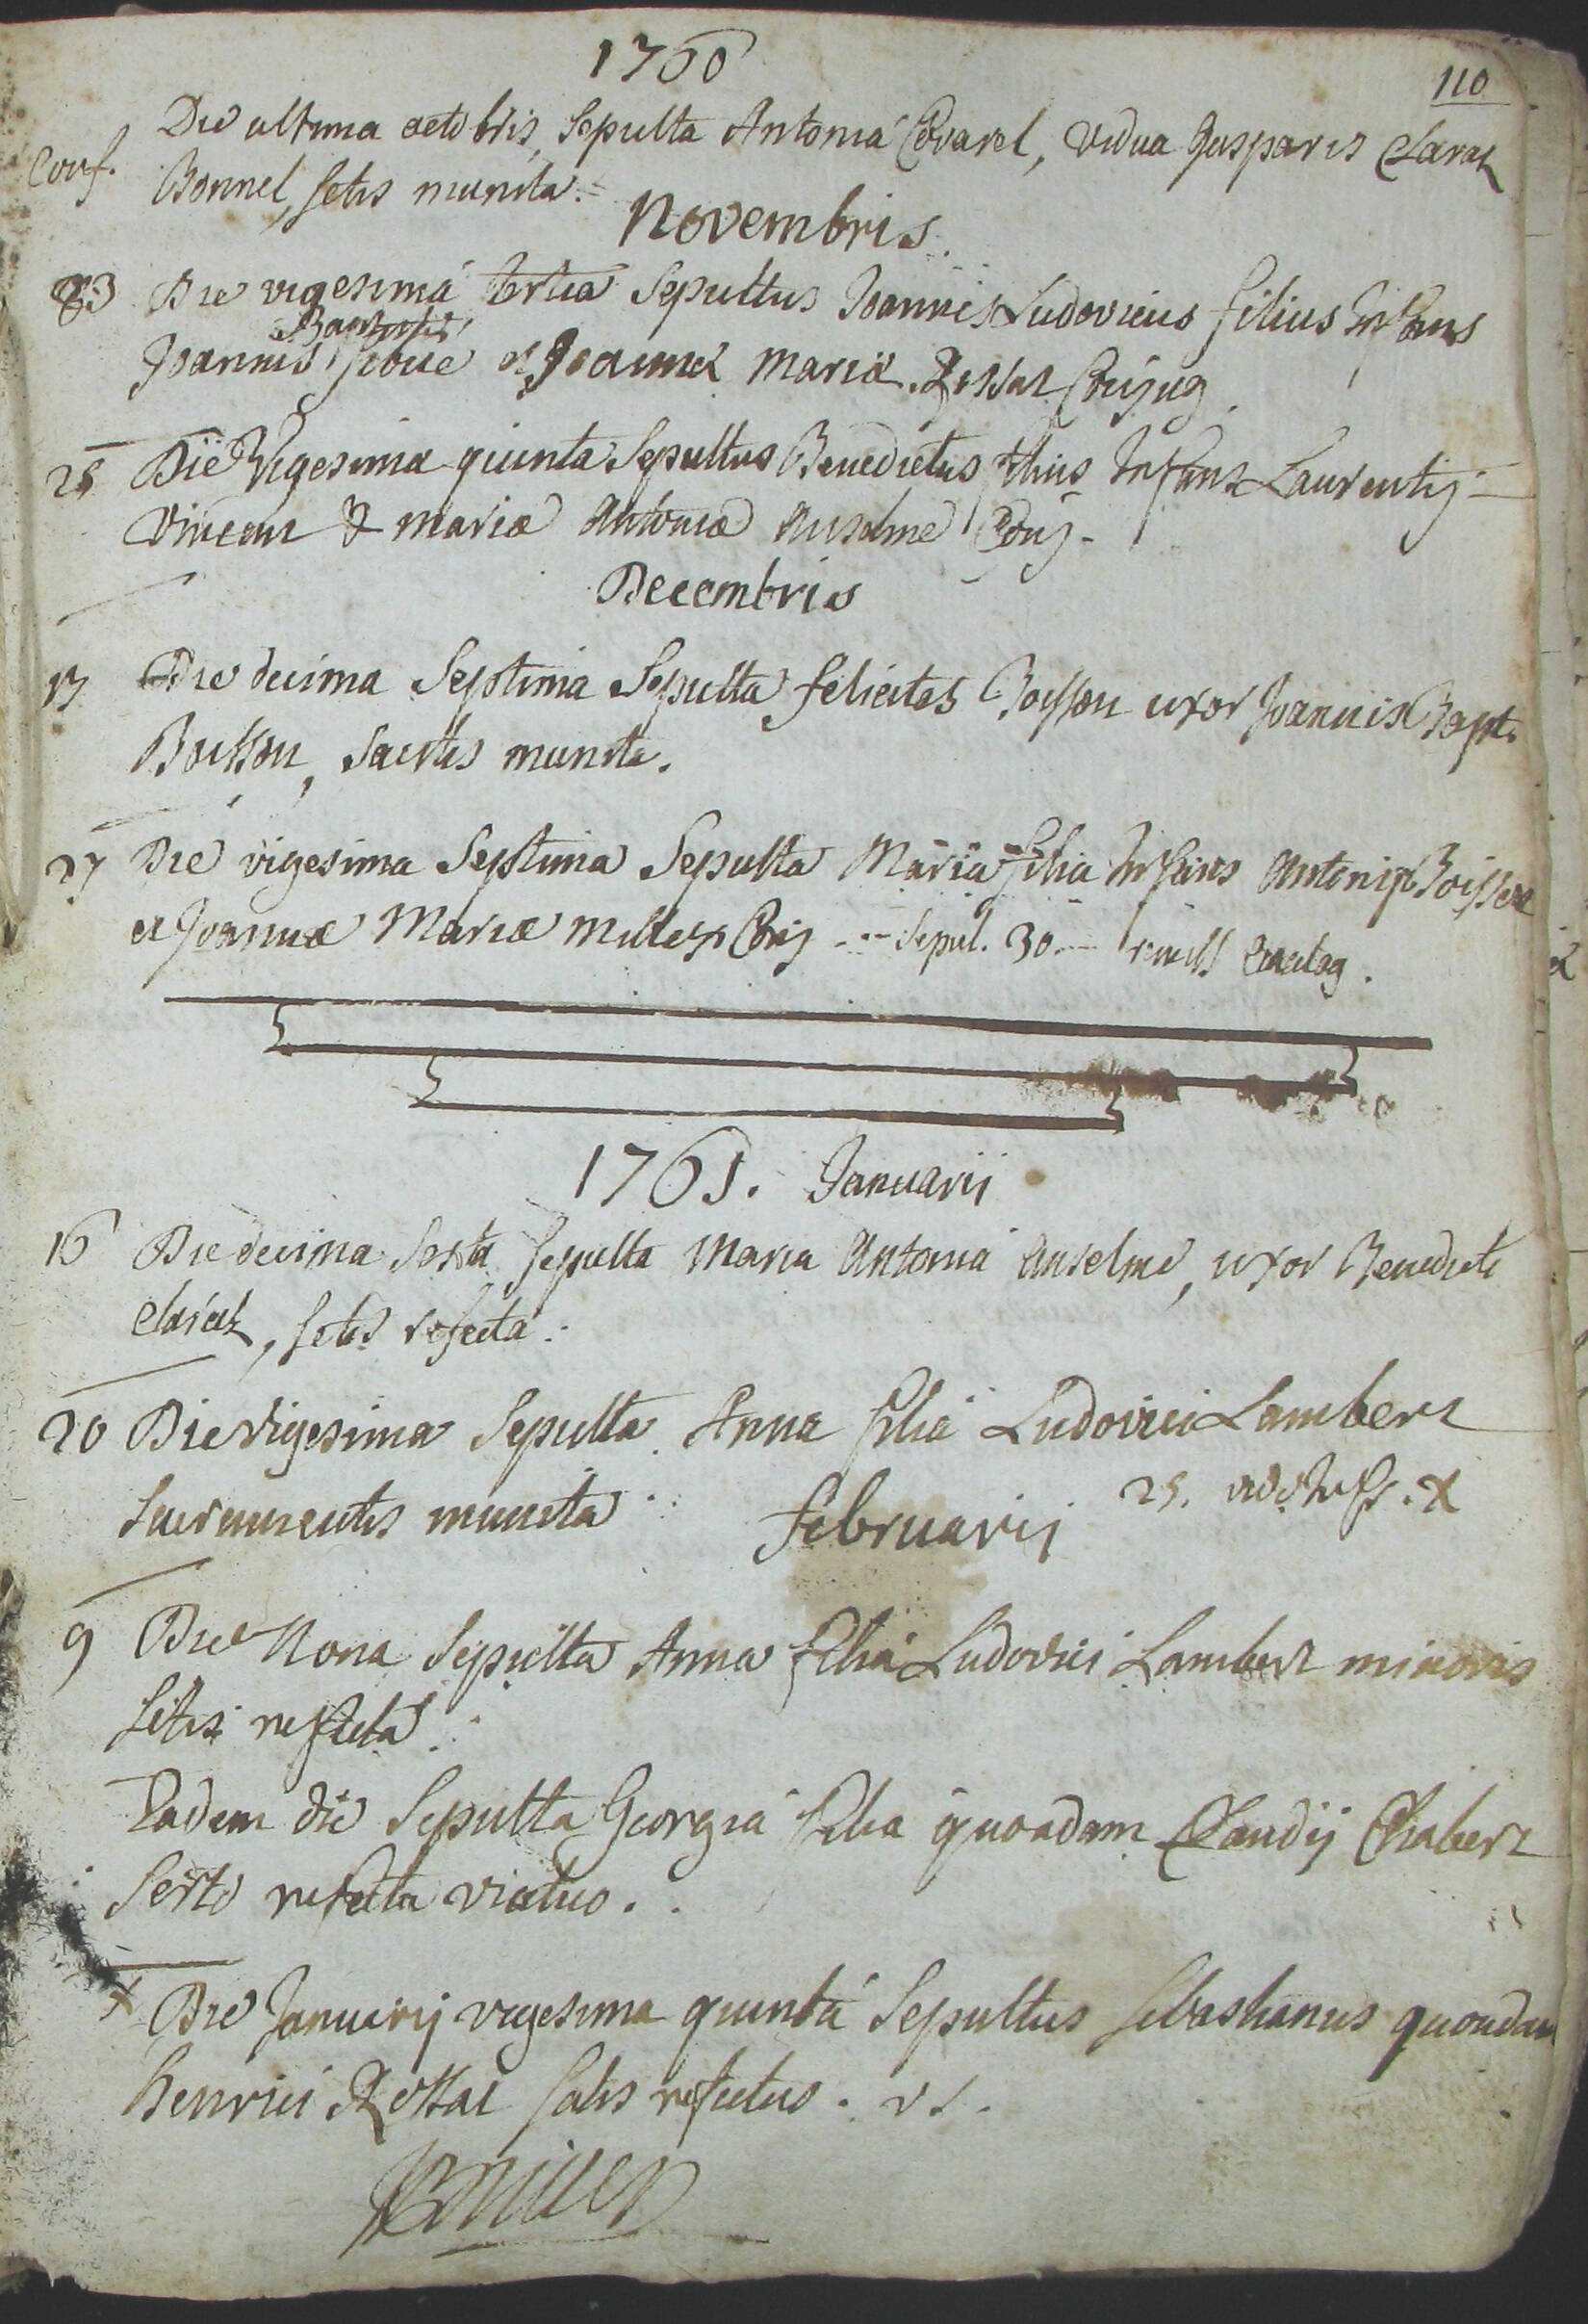 1760
110
Die ultima octobris, Sepulta Antonia Covarel, vidua Gasparis Claraz
Conf. Bonnel, sctis munita.
Novembris
23 Die vigesima tertia Sepultus Joannes Ludovicus filius Infans
Baptistæ
Joannis et Joannæ Mariæ Rossat Conjug.
25 Die Vigesima quinta Sepultus Benedictus filius Infans Laurentij
Vincent & mariæ Antoniæ Anselme Conj.
Decembris
17 Die decima Septima Sepulta felicitas Boisson uxor Joannis Bapt.
Boisson, Sacrtis munita.
27 Die vigesima Septima Sepulta Maria filia Infans Antonij Boisson
et Joannæ Mariæ Millex Conj - - Sepul. 30. -
1761. Januarii
16 Die decima Sexta Sepulta Maria Antonia Anselme, uxor Benedicti
Claraz, sctis refecta.
20 Die vigesima Sepulta Anna filia Ludovici Lambert
Sacramentis munita
februarij 25. vide Infr. x
9 Die Nona Sepulta Anna filia Ludovici Lambert minoris
sctis refecta
Eadem die Sepulta Georgia filia quondam Claudij Chabert
Scto refecta viatico.
x Die Januarij vigesima quinta Sepultus Sebastianus quondam
henrici Rossat sctis refectus.